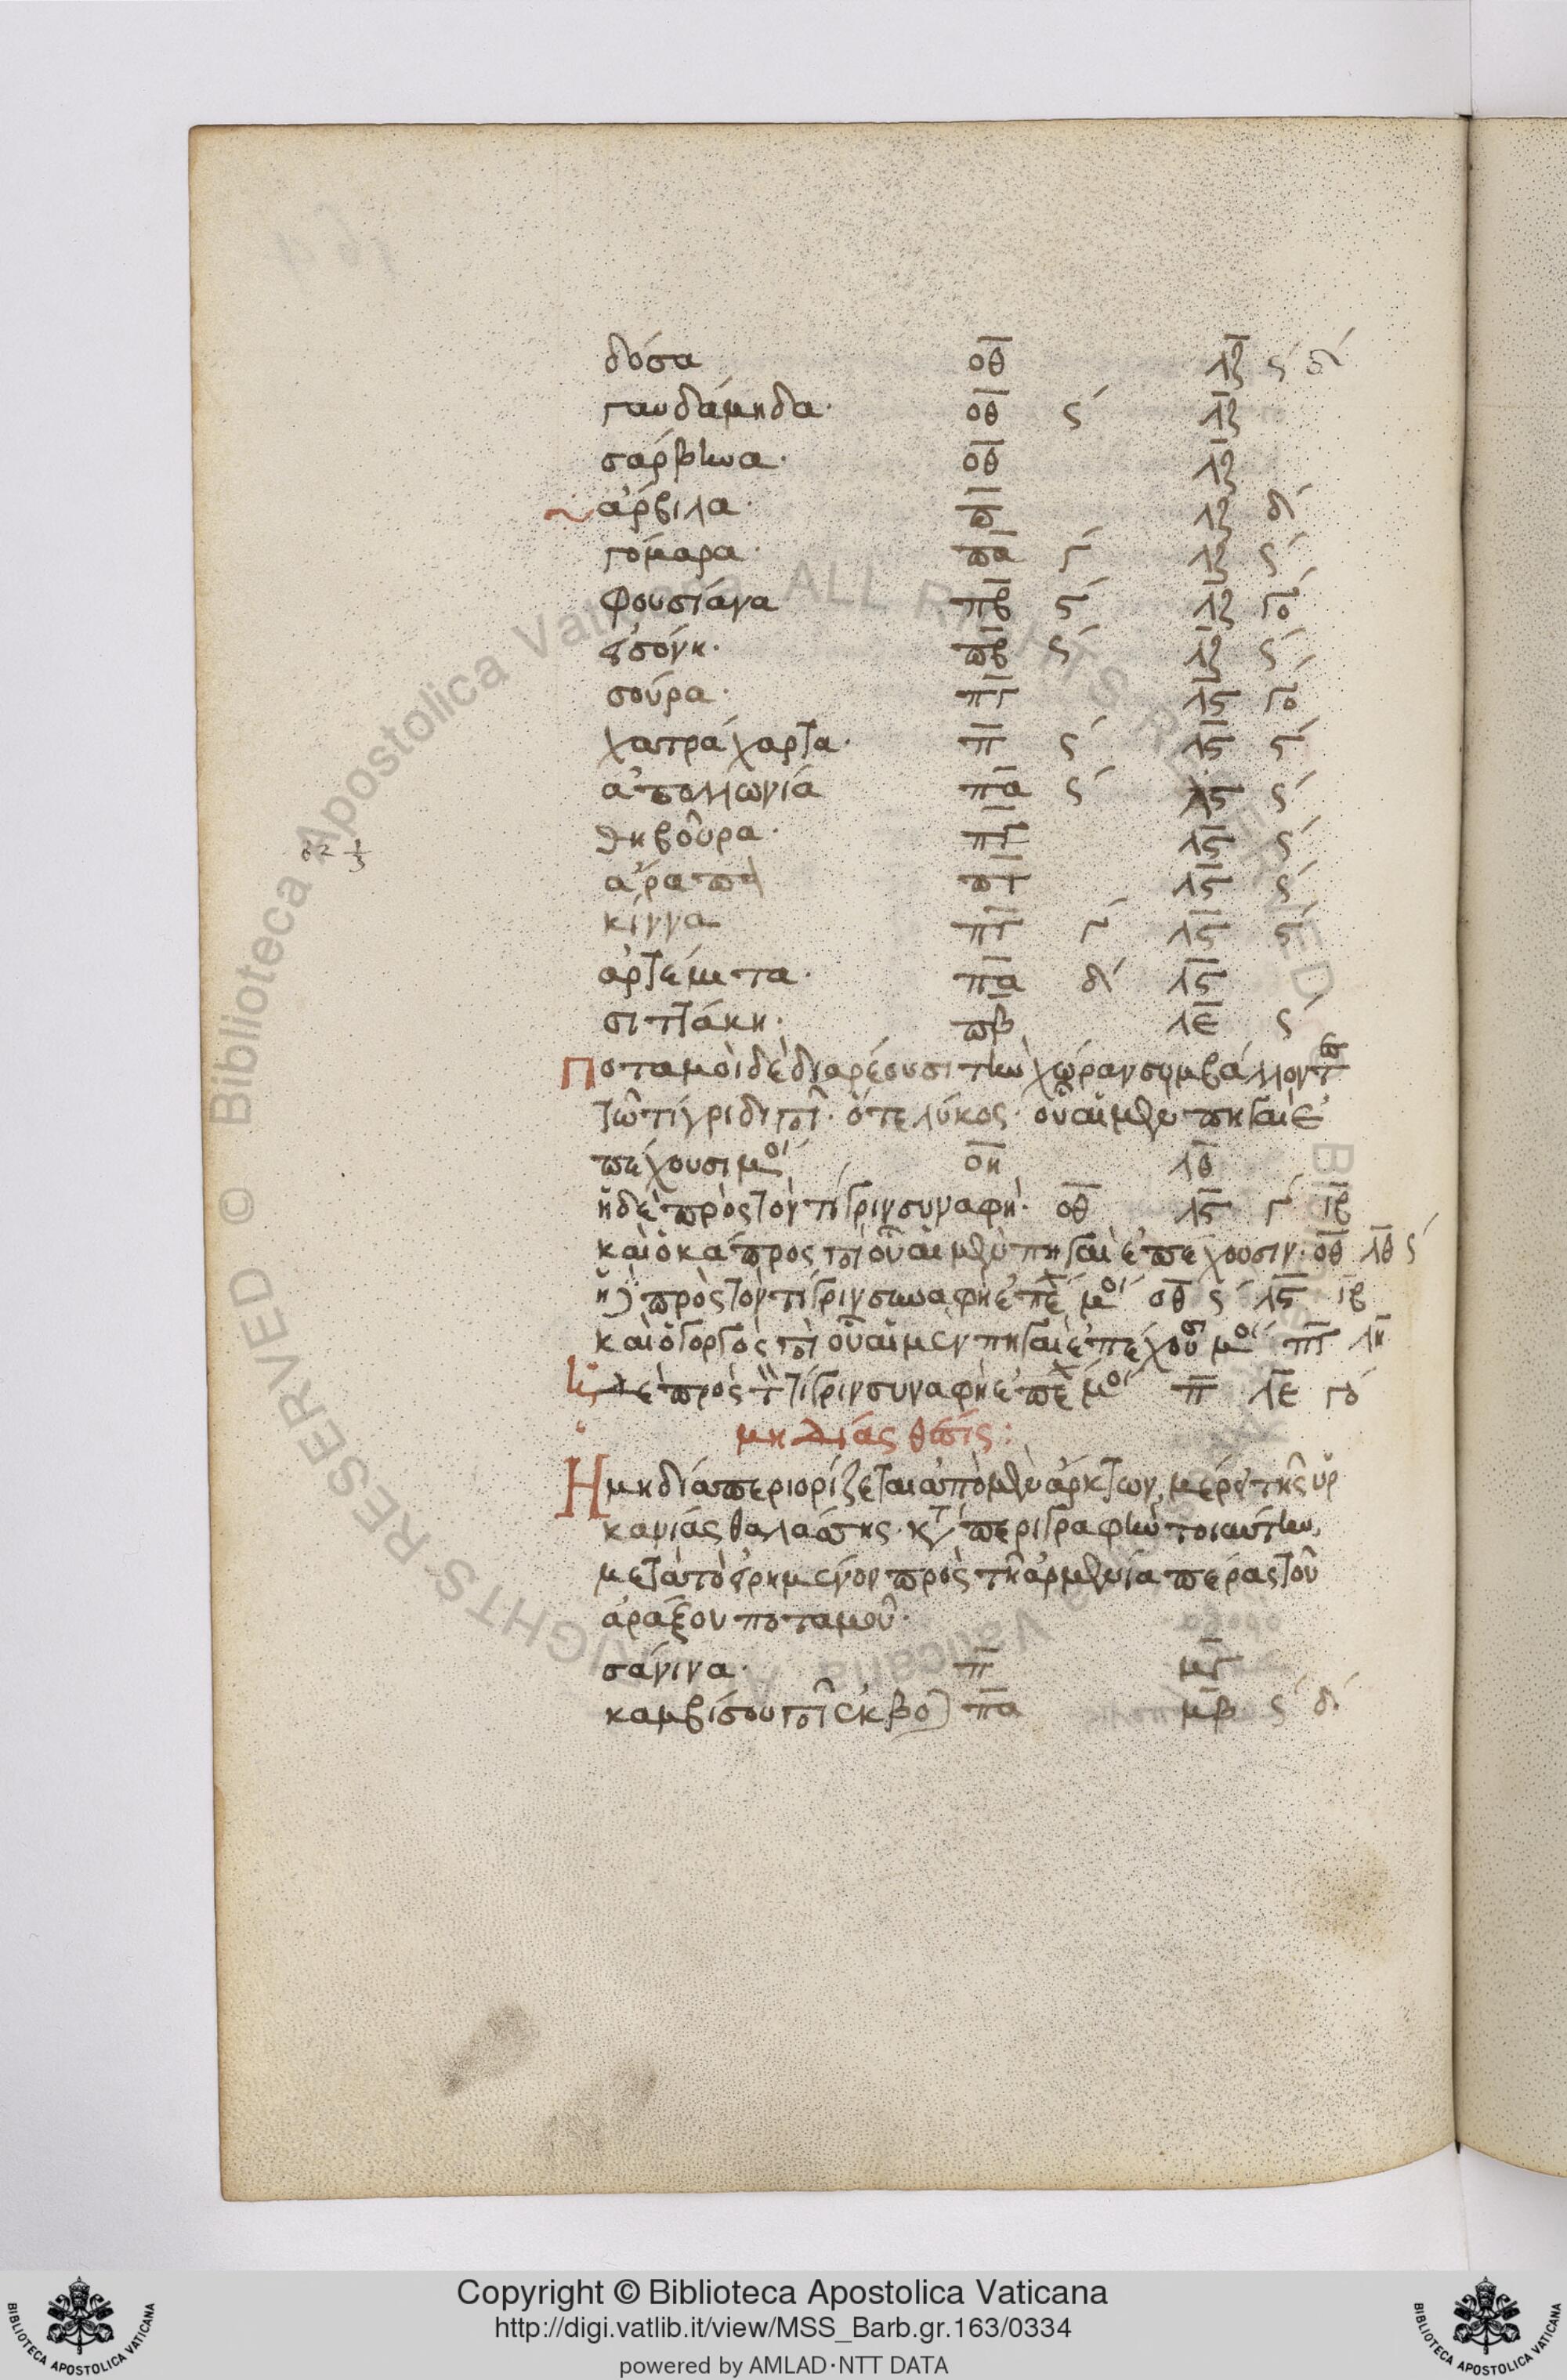 δόσα οθ λζ ς δ
γαυδάμηδα· οθ ς λζ
σάρβηνα· οθ λζ
ἄρβιλα· π λζ δ
γόμαρα· πα γ λζ ς
φουσιάνα πβ ς λζ γο
ἰσόνη· πβ ς λζ ς
σούρα· πγ λς γο
χατραχάρτα· π ς λς ς
ἀπολλωνία πα ς λς ς
θηβοῦρα· πγ λς ς
ἄραπα πγ λς ς
κίννα πγ γ λς ς
ἀρτέμιτα· πα δ λς
σιττάκη· πβ λε ς
82 1/3
Ποταμοὶ δὲ διαρέουσι τὴν χώραν συμβάλλοντ
τῶ τίγριδι ποτ· ὅ τε λύκος· οὗ αἱ μὲν πηγαὶ ἐ
πέχουσι μοι οη λθ
ἡ δὲ πρὸς τὸν τίγριν συναφή· οθ λς γ ιβ
καὶ ὁ κάπρος ποτ οὗ αἱ μὲν πηγαὶ ἐπέχουσιν· οθ λθ ς
ἡ δὲ πρὸς τὸν τίγριν συναφὴ ἐπέχ μοι οθ ς λς ιβ
καὶ ὁ γοργὸς ποτ οὗ αἱ μὲν πηγαὶ ἐπέχουσι μοι πγ λη
ἡ δὲ πρὸς τ τίγριν συναφὴ ἐπέχ μοι π λε γο
μηδίας θέσις:
Ἡ μηδία περιορίζεται ἀπὸ μὲν ἄρκτων, μέρει τῆς ὑρ
κανίας θαλάσσης· κτ περιγραφὴν τοιαύτην,
μετὰ τὸ εἰρημένον πρὸς τῆ ἀρμενία πέρας τοῦ
ἀράξου ποταμοῦ·
σάνινα· π μγ
καμβίσου ποτ ἐκβο πα μβ ς δ
Copyright © Biblioteca Apostolica Vaticana
http://digi.vatlib.it/view/MSS_Barb.gr.163/0334
powered by AMLAD·NTT DATA